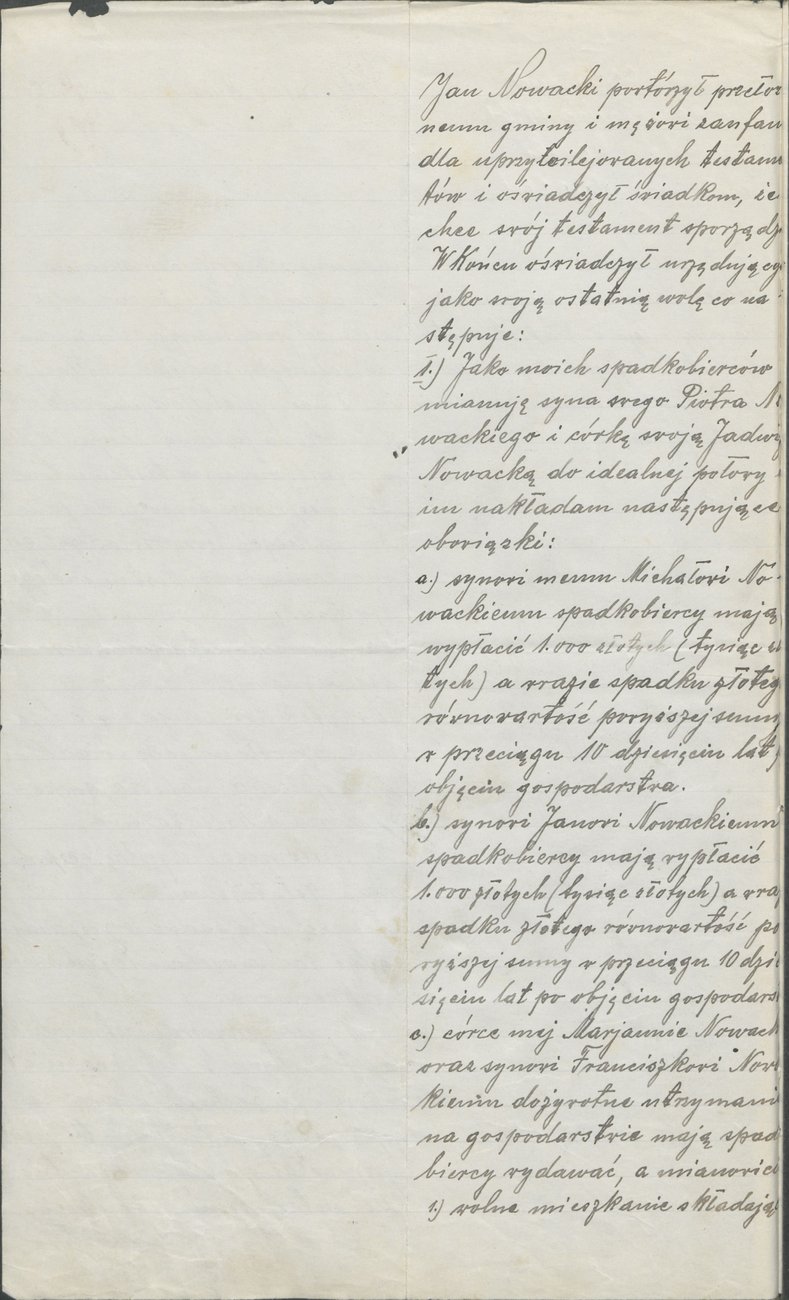 Jan Nowacki portórzył przełoż
nemu gminy i mężori zaufan
dla uprzywilejoranych testame
tów i ośriadczył śriadkom, że
chce srój testament sporządz
W Końcu ośriadczył urzędujące
jako sroją ostatnią wolę co na
stępuje:
I.) Jako moich spadkobierców
mianuję syna srego Piotra No
wackiego i córkę sroją Jadwig
Nowacką do idealnej połory
im nakładam następujące
oboriązki:
a.) synori memu Michałori No-
wackiemu spadkobiercy mają
wypłacić 1.000 złotych (tysiąc zł
tych) a rrazie spadku złoteg
rórnorartość poryższej sumy
r przeciągu 10 dziesięciu lat p
objęciu gospodarstra.
b.) synori Janori Nowackiemu
spadkobiercy mają rypłacić
1.000 złotych (tysiąc złotych) a rraz
spadku złotego rórnorartość po
ryższej sumy r przeciągu 10 dzie
sięciu lat po objęciu gospodars
c.) córce mej Marjannie Nowack
oraz synori Franciszkori Nowa
kiemu dożyrotne utrzymani
na gospodarstrie mają spad
biercy rydawać, a mianorici
1.) rolne mieszkanie składają